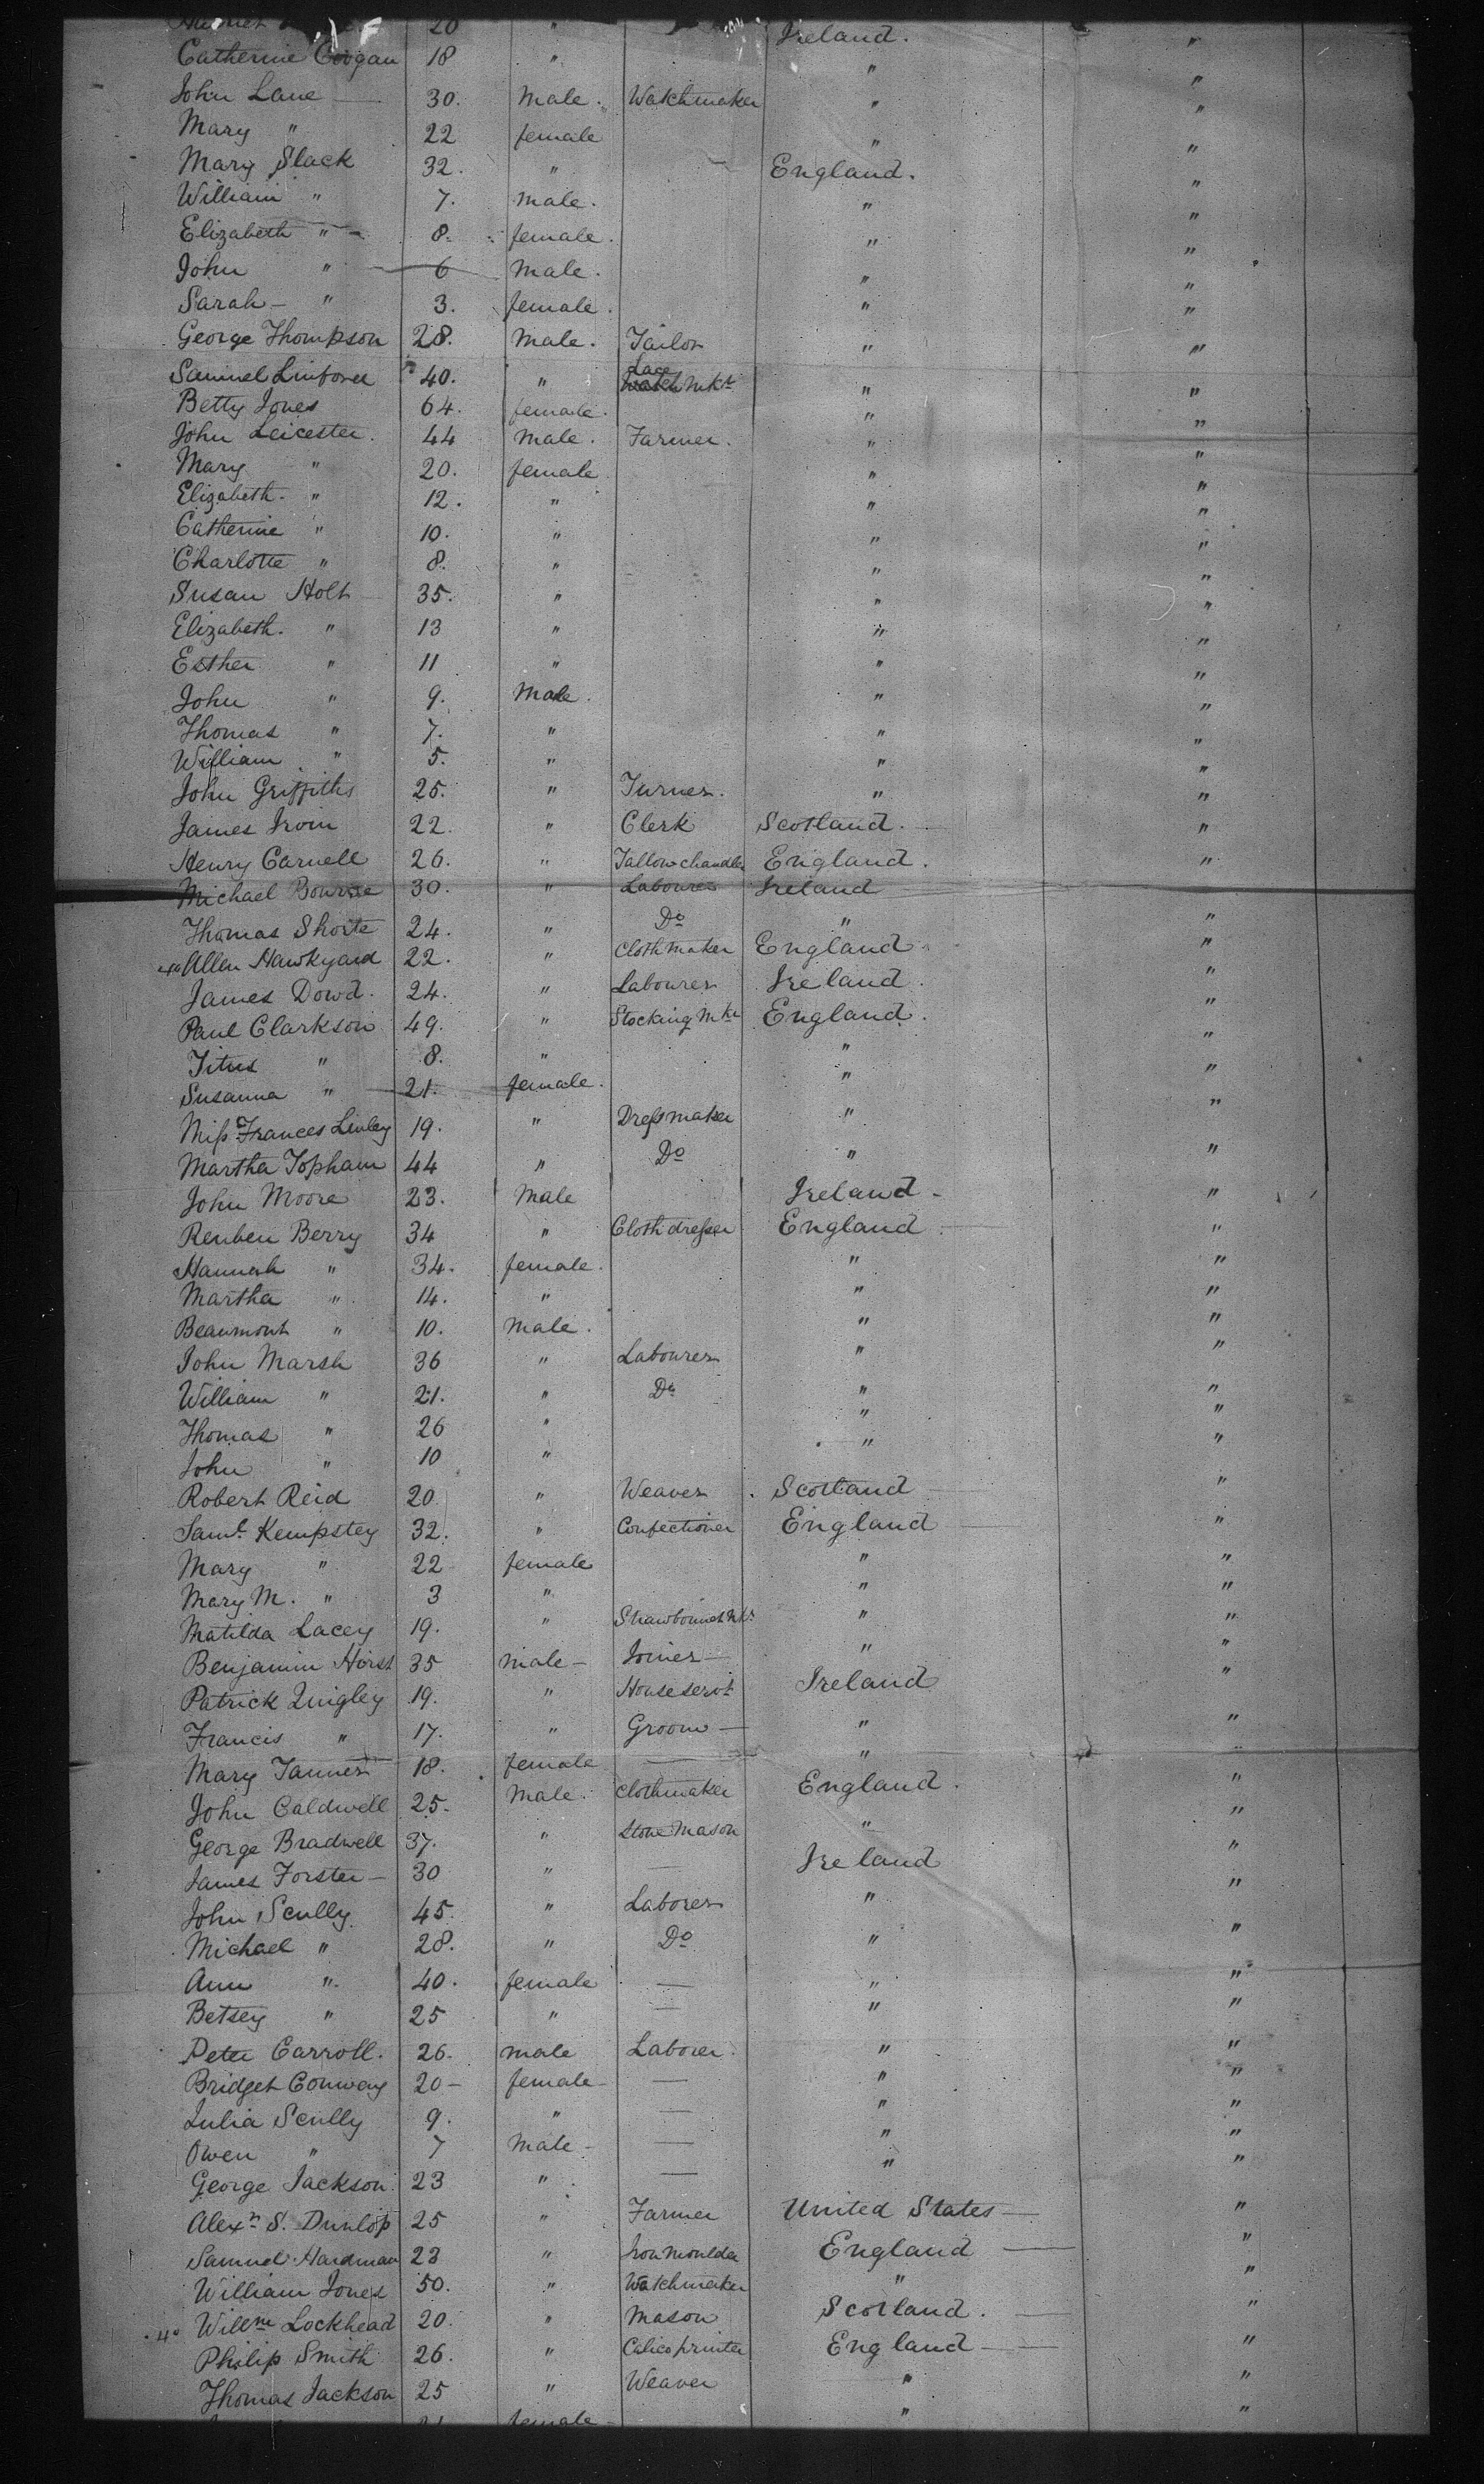 20 " Ireland. "
Catherine Coogan 18 " " "
John Lane 30. Male. Watchmaker " "
Mary " 22 female " "
Mary Slack 32. " England. "
William " 7. Male. " "
Elizabeth " 8. female. " "
John " 6 Male. " "
Sarah " 3. female. " "
George Thompson 28. Male. Tailor " "
Samuel 40. " Lace Mkr " "
Betty Jones 64. female. " "
John Leicester. 44 Male. Farmer. " "
Mary " 20. female " "
Elizabeth. " 12. " " "
Catherine " 10. " " "
Charlotte " 8. " " "
Susan Holt 35. " " "
Elizabeth. " 13 " " "
Esther " 11 " " "
John " 9. Male. " "
Thomas " 7. " " "
William " 5. " " "
John Griffiths 25. " Turner. " "
James Irvin 22. " Clerk Scotland. "
Henry Carnell 26. " Tallow chandler England. "
Michael Bourne 30. " Labourer Ireland
Thomas Shorte 24. " Do " "
Allen Hawkyard 22. " Clothmaker England "
James Dowd. 24. " Labourer Ireland. "
Paul Clarkson 49. " Stocking Mkr England. "
Titus " 8. " " "
Susanna " 21. female. " "
Miss Frances Linley 19. " Dressmaker " "
Martha Topham 44 " Do " "
John Moore 23. Male Ireland "
Reuben Berry 34 " Cloth dresser England "
Hannah " 34. female. " "
Martha " 14. " " "
Beaumont " 10. Male. " "
John Marsh 36 " Labourer " "
William " 21. " Do " "
Thomas " 26 " " "
John " 10 " " "
Robert Reid 20 " Weaver Scotland "
Saml. Kempstey 32. " Confectioner England "
Mary " 22 female " "
Mary M. " 3 " " "
Matilda Lacey 19. " Strawbonnet Mkr " "
Benjamin Hirst 35 male Joiner " "
Patrick Quigley 19. " House servt Ireland "
Francis " 17. " Groom " "
Mary Tanner 18. female "
John Caldwell 25. Male. Clothmaker England. "
George Bradwell 37. " Stone Mason " "
James Forster 30 " Ireland "
John Scully 45. " Laborer " "
Michael " 28. " Do " "
Ann " 40. female " "
Betsey " 25 " " "
Peter Carroll. 26. male Laborer. " "
Bridget Conway 20 female " "
Julia Scully 9. " " "
Owen " 7 Male " "
George Jackson. 23 " " "
Alexr S. Dunlop 25 " Farmer United States "
Samuel Hardman 23 " Iron Moulder England "
William Jones 50. " Watchmaker " "
Willm Lockhead 20. " Mason Scotland. "
Philip Smith 26. " Calico printer England "
Thomas Jackson 25 " Weaver " "
female " "